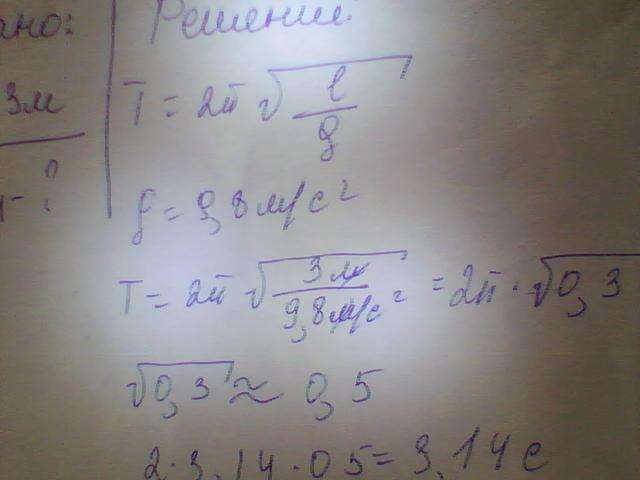 ано: Решение:
3м T = 2π √(l/g)
- ?
g = 9,8 м/с²
T = 2π √(3м/9,8м/с²) = 2π · √0,3
√0,3 ≈ 0,5
2·3,14·05 = 3,14 с